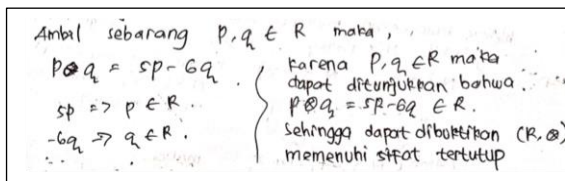 Ambil sebarang p, q ∈ R maka,
p⊗q = 5p - 6q
5p => p ∈ R.
-6q => q ∈ R.
karena p, q ∈ R maka
dapat ditunjukkan bahwa.
p⊗q = 5p-6q ∈ R.
Sehingga dapat dibuktikan (R, ⊗)
memenuhi sifat tertutup